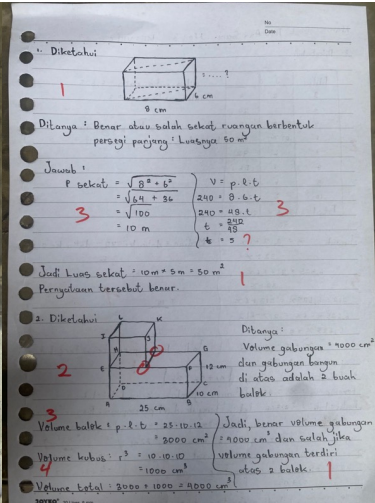 No
Date
1. Diketahui
1
= .... ?
6 cm
8 cm
Ditanya : Benar atau salah sekat ruangan berbentuk
persegi panjang : Luasnya 50 m²
Jawab :
P sekat = √8² + 6²
= √64 + 36
= √100
= 10 m
3
V = p.l.t
240 = 8.6.t
240 = 48.t
t = 240/48
t = 5 ?
3
Jadi Luas sekat = 10m × 5m = 50 m²
1
Pernyataan tersebut benar.
2. Diketahui
2
L
K
J
H
G
E
F
D
C
A
B
12 cm
10 cm
25 cm
Ditanya :
Volume gabungan = 4000 cm³
dan gabungan bangun
di atas adalah 2 buah
balok.
3
Volume balok = p.l.t = 25.10.12
= 3000 cm³
Volume kubus : r³ = 10.10.10
= 1000 cm³
4
Volume total = 3000 + 1000 = 4000 cm³
Jadi, benar volume gabungan
= 4000 cm³ dan salah jika
volume gabungan terdiri
atas 2 balok.
1